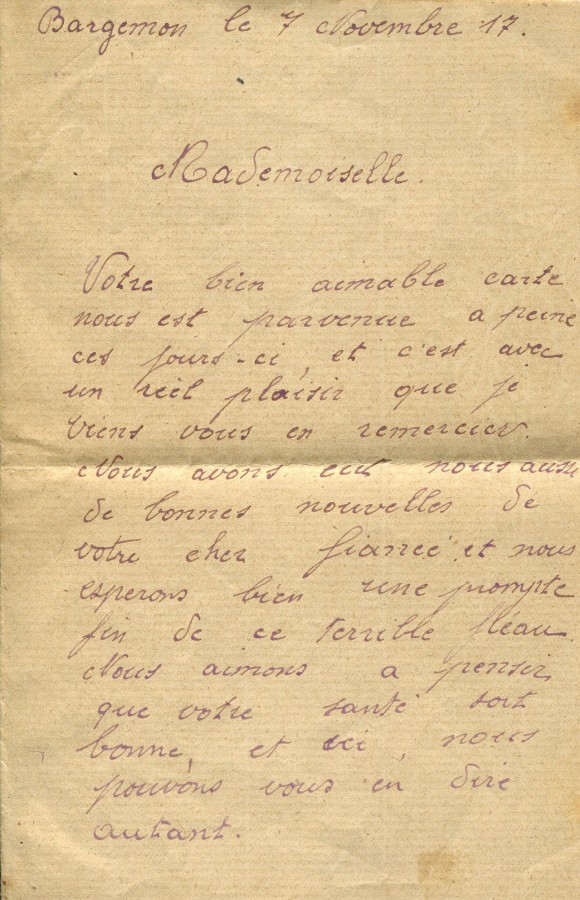 Bargemon le 7 Novembre 17.
Mademoiselle.
Votre bien aimable carte
nous est parvenue a peine
ces jours-ci, et c'est avec
un réel plaisir que je
viens vous en remercier.
Nous avons eut nous aussi
de bonnes nouvelles de
votre cher fiancé et nous
esperons bien une prompte
fin de ce terrible fléau.
Nous aimons a penser
que votre santé soit
bonne, et ici, nous
pouvons vous en dire
autant.